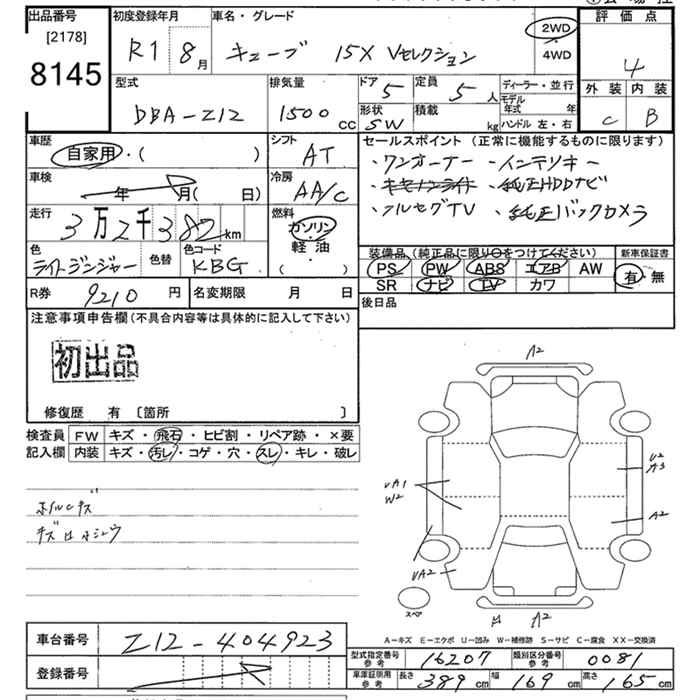 出品番号 初度登録年月 車名・グレード 評価点
[2178]
8145
R1 8月 キューブ 15X Vセレクション 2WD
・
4WD
4
外装 内装
C B
型式 排気量 ドア 定員 ディーラー・並行
DBA-Z12 1500cc 5 5人 モデル年式 年
形状 積載 kg ハンドル 左・右
SW
車歴 シフト セールスポイント(正常に機能するものに限ります)
自家用・( ) AT ・ワンオーナー ・インテリキー
車検 冷房 ・キセノンライト ・純正HDDナビ
年 月( 日) AA/C ・フルセグTV ・純正バックカメラ
走行 燃料
3万2千382km ガソリン
・
軽油
・
( )
色 色替 色コード 装備品(純正品に限り○をつけてください) 新車保証書
ライトジンジャー KBG PS PW ABS エアB AW 有・無
SR ナビ TV カワ
R券 9210円 名変期限 月 日 後日品
注意事項申告欄(不具合内容等は具体的に記入して下さい)
初出品
修復歴 有 〔箇所 〕
検査員 FW キズ・飛石・ヒビ割・リペア跡・×要
記入欄 内装 キズ・汚レ・コゲ・穴・スレ・キレ・破レ
A2
U2
A3
UA1
W2
A2
UA2
スペア
A2
A-キズ E-エクボ U-凹み W-補修跡 S-サビ C-腐食 XX-交換済
車台番号 Z12-404923
型式指定番号 参考 16207 類別区分番号 参考 0081
登録番号
車庫証明用 参考 長さ 389cm 幅 169cm 高さ 165cm